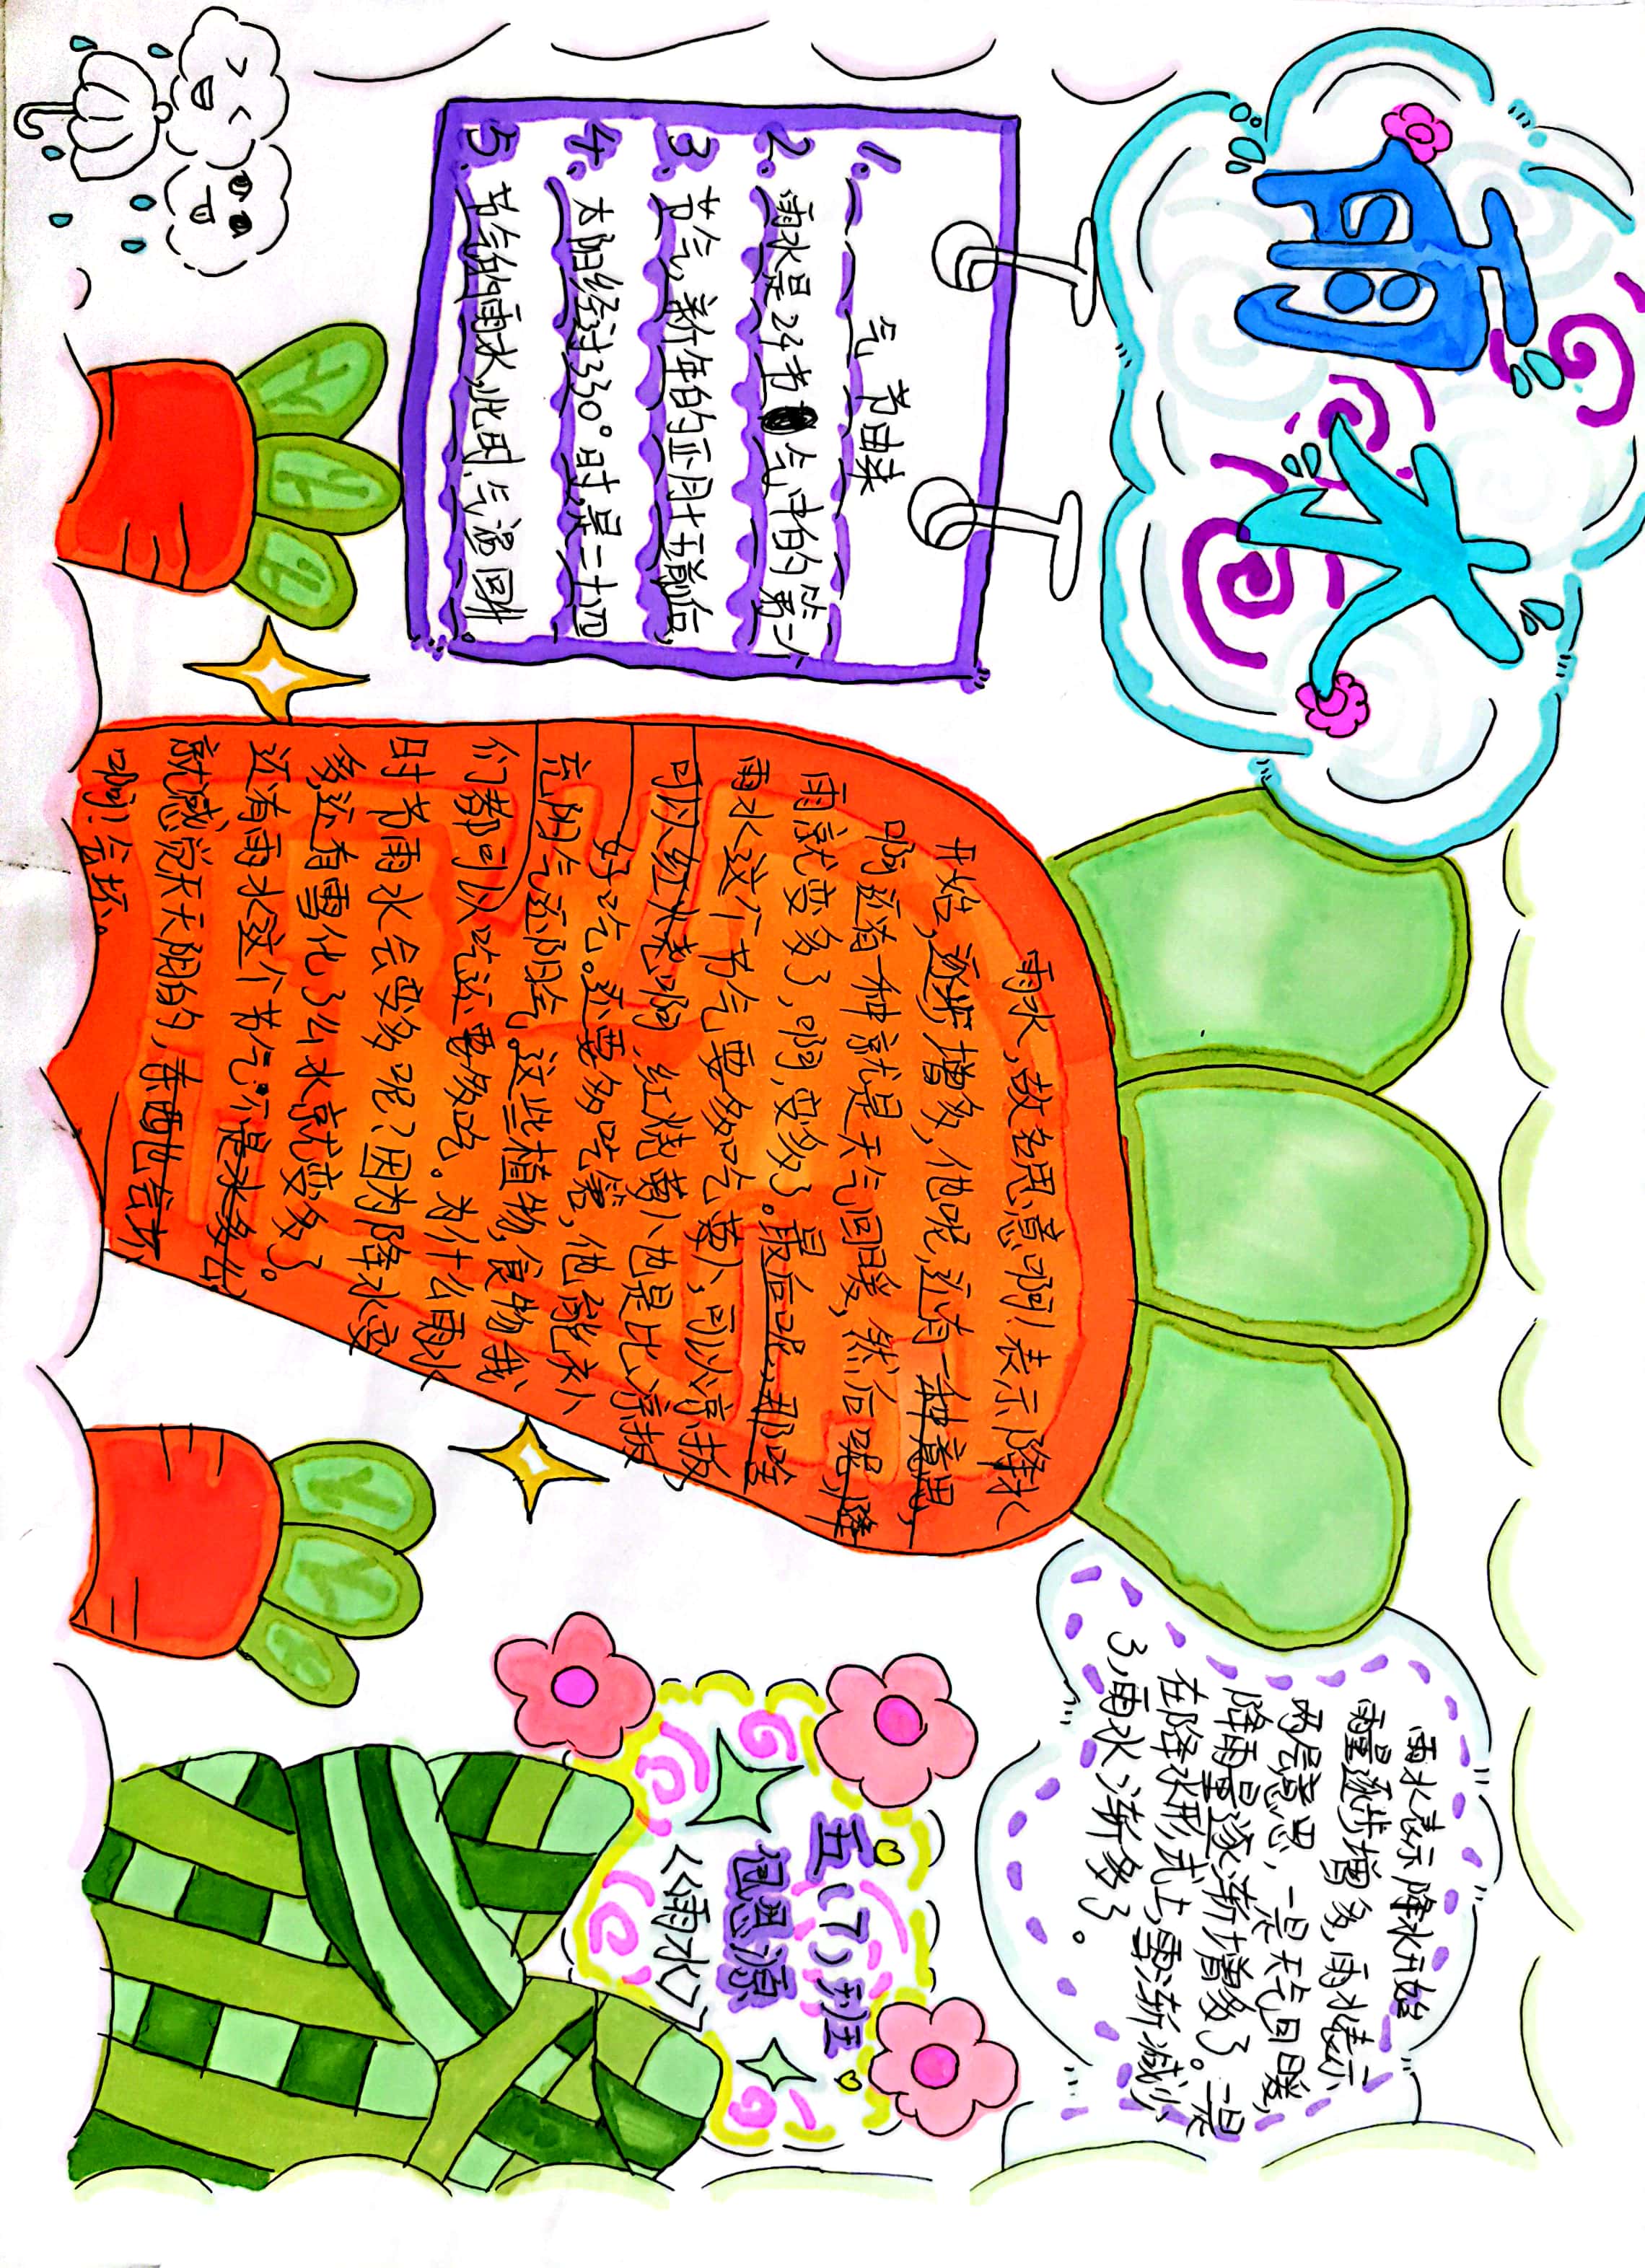 雨水
气节由来
1.
2. 雨水是24节气中的第二
3. 节气,新年的正月十五前后,
4. 太阳经过330°时,是二十四
5. 节气的雨水,此时,气温回升.
雨水,故名思意啊!表示降水
开始,逐步增多,他呢,还有一种意思,
啊还有一种就是天气回暖,然后呢,降
雨就变多了,啊,变多了。最后呢,那啥
雨水这个节气要多吃萝卜,可以凉拌,
可以红烧啊,红烧萝卜也是比凉拌
好吃。还要多吃葱,他能补
充阴气还阳气。这些植物,食物我
们都可以吃还要多吃。为什么雨水
时节雨水会变多呢?因为降水变
多,还有雪化了么水就变多了。
还有雨水这个节气不是水多么
就感觉天天阴的,东西也会坏
啊!会坏。
雨水表示降水开始
雨量逐步增多,雨水表示
两层意思,一是天气回暖,
降雨量逐渐增多了。二是
在降水形式上,雪渐减少
了,雨水渐多了。
五(7)班
包恩源
《雨水》